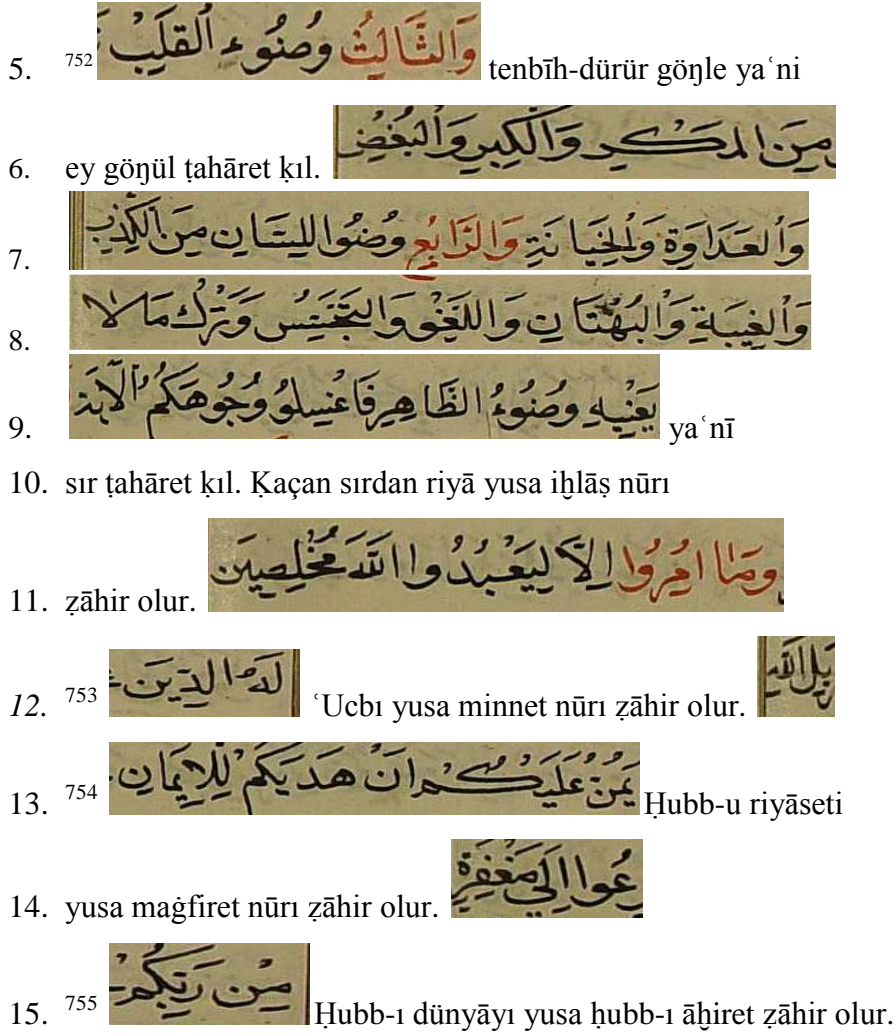 5. 752 وَالثَّالِثُ وُضُوءِ الْقَلْبِ tenbīh-dürür göŋle yaʿni
6. ey göŋül ṭahāret ḳıl. مِنَ الْمَكْرِ وَالْكِبْرِ وَالْبُغْضِ
7. وَالْعَدَاوَةِ وَالْخِيَانَةِ وَالرَّابِعِ وُضُوا اللِّسَانِ مِنَ الْكِذْبِ
8. وَالْغِيبَةِ وَالْبُهْتَانِ وَاللَّغْوِ وَالتَّجَسُّسِ وَتَرْكِ مَا لَا
9. يَعْنِيهِ وُضُوءُ الظَّاهِرِ فَاغْسِلُوا وُجُوهَكُمُ yaʿnī
10. sır ṭahāret ḳıl. Ḳaçan sırdan riyā yusa iḫlāṣ nūrı
11. ẓāhir olur. وَمَا اُمِرُوا اِلَّا لِيَعْبُدُوا اللهَ مُخْلِصِينَ
12. 753 لَهُ الدِّينَ ʿUcbı yusa minnet nūrı ẓāhir olur. بَلِ اللهُ
13. 754 يَمُنُّ عَلَيْكُمْ اَنْ هَدَيكُمْ لِلْاِيمَانِ Ḥubb-u riyāseti
14. yusa maġfiret nūrı ẓāhir olur. رِعُوا اِلَي مَغْفِرَةٍ
15. 755 مِنْ رَبِّكُمْ Ḥubb-ı dünyāyı yusa ḥubb-ı āḫiret ẓāhir olur.